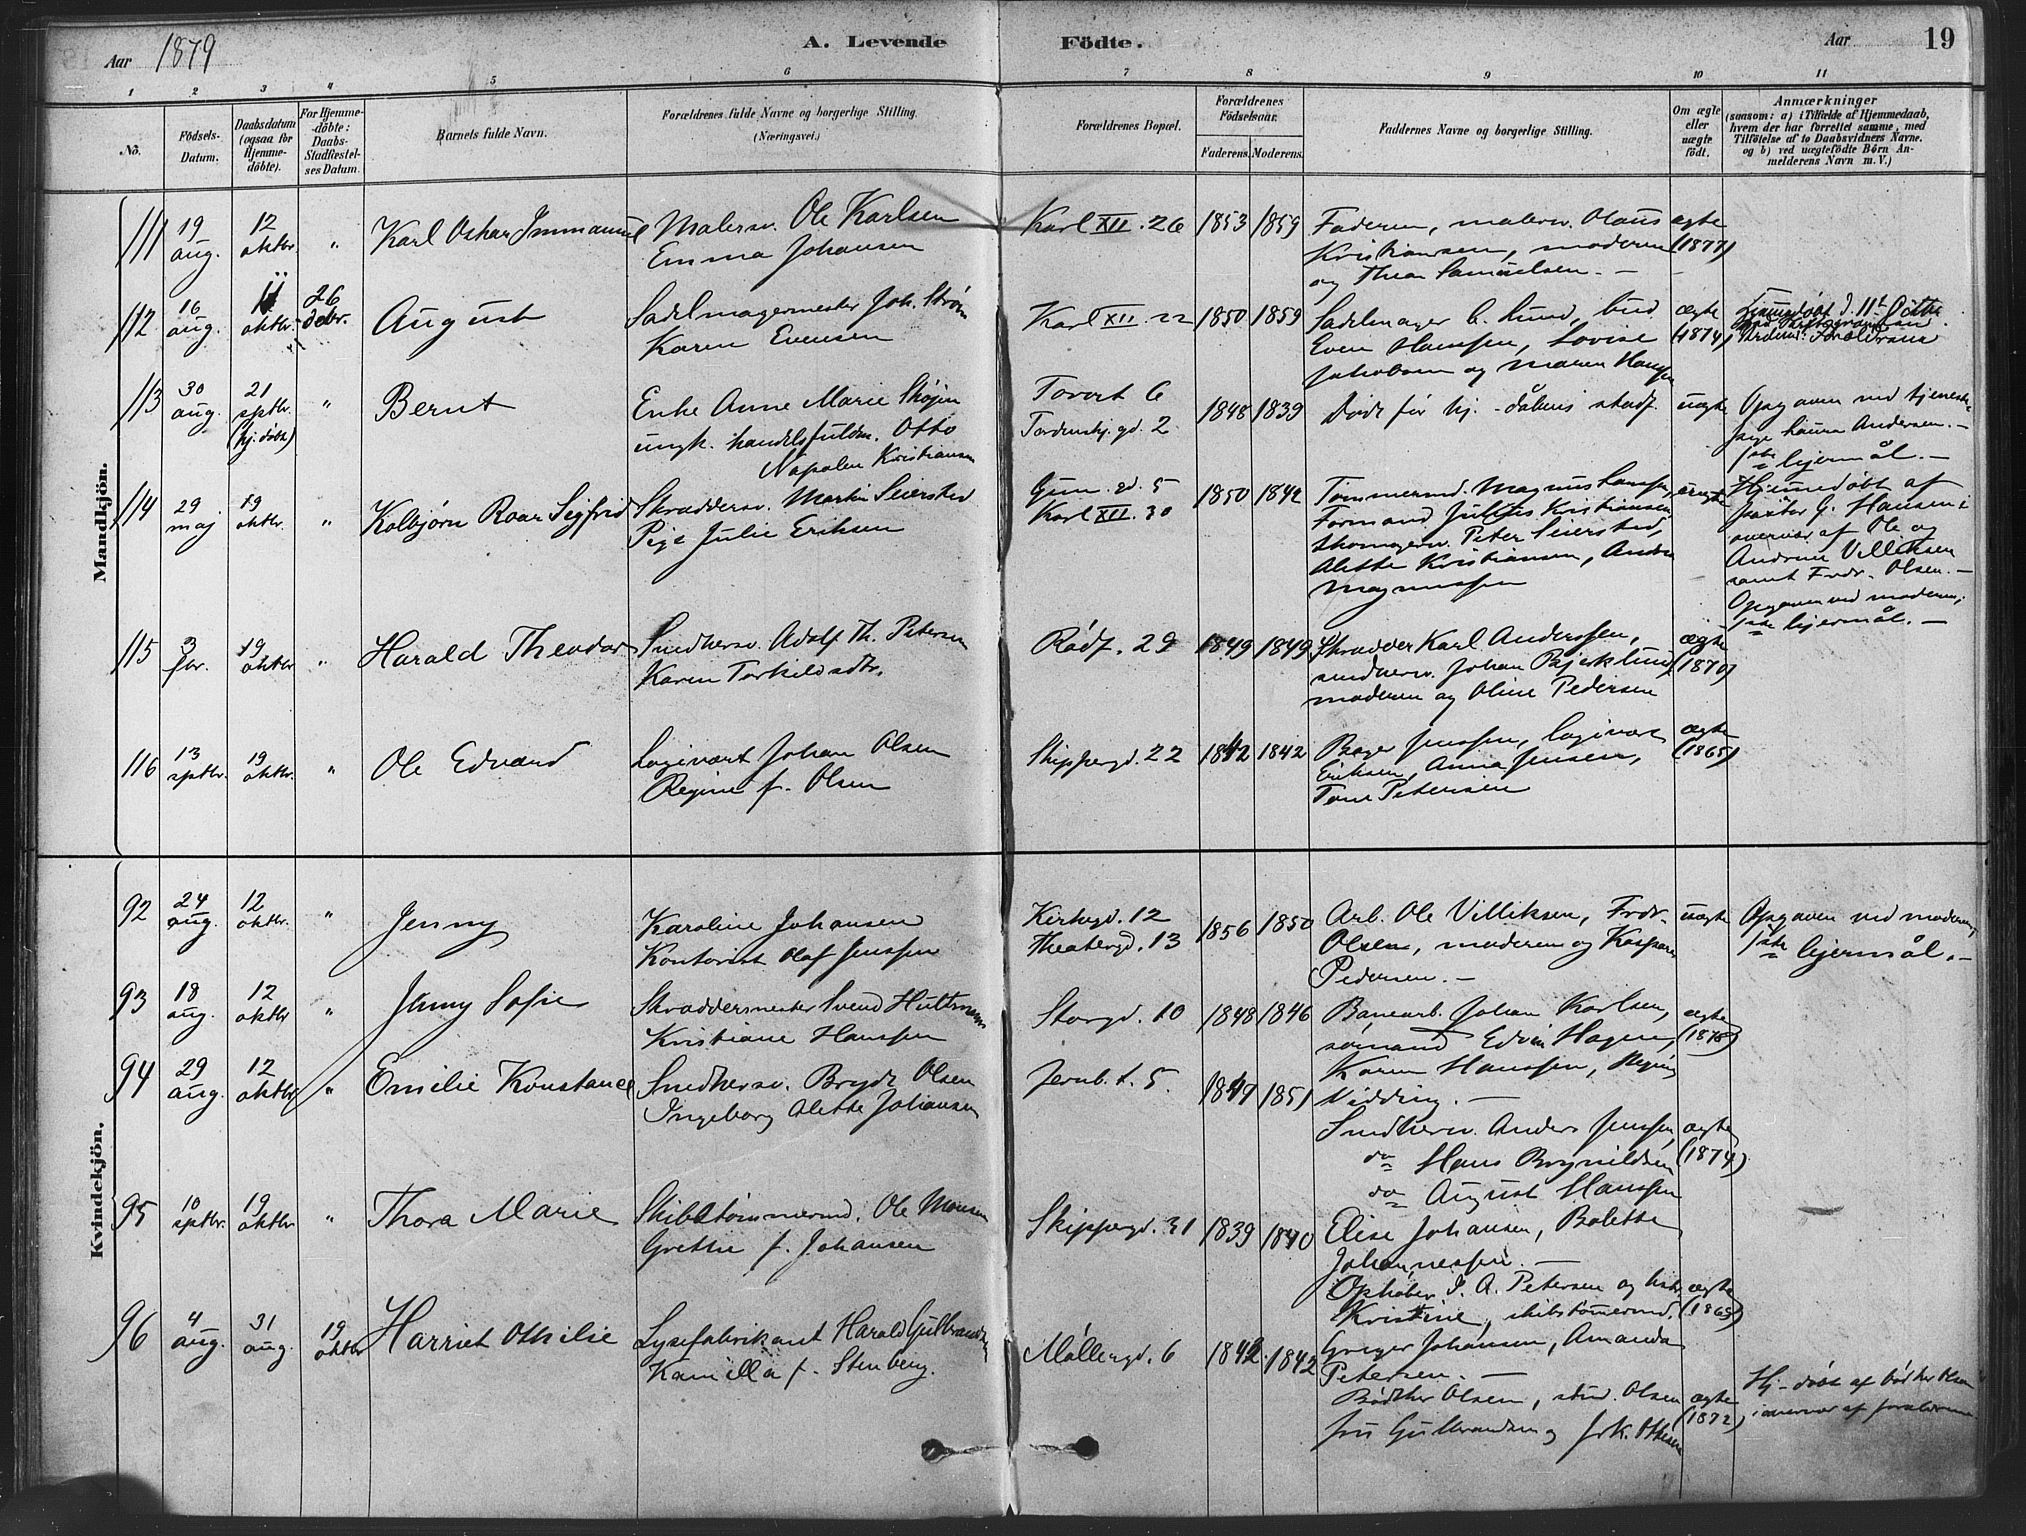 Aar 1879 A. Levende Födte. Aar 19
1 2 3 4 5 6 7 8 9 10 11
No. Födsels-Datum. Daabsdatum (ogsaa for Hjemme-döbte). For Hjemme-döbte: Daabs-Stadfæstel-ses Datum. Barnets fulde Navn. Forældrenes fulde Navne og borgerlige Stilling. (Næringsvei.) Forældrenes Bopæl. Forældrenes Födselsaar. Faderens. Moderens. Faddernes Navne og borgerlige Stilling. Om ægte eller uægte födt. Anmærkninger (saasom: a) i Tilfælde af Hjemmedaab, hvem der har forrettet samme, med Tilföielse af to Daabsvidners Navne. og b) ved uægtefödte Börn An-melderens Navn m. V.)
Mandkjön.
111 19 aug. 12 oktbr. " Karl Oskar Immanuel Malersv. Ole Karlsen Karl XII. 26 1853 1859 Faderen, malersv. Olaus ægte
Emma Johansen Kristiansen, moderen (1877)
og Thea Samuelsen. —
112 16 aug. 11 oktbr. 26 debr. August Sadelmagermester Joh. Strøm Karl XII. 22 1850 1859 Sadelmager C. Lund, bud ægte
Karen Evensen Even Hansen, Lovise (1874)
Jakobsen og Maren Hansen
113 30 aug. 21 sptbr. (hj. døbt) " Bernt Enke Anne Marie Skøien Torvet 6 1848 1839 Døde før hj.-dåbens stadf. uægte Opgaven ved tjeneste-
ungk. handelsfuldm. Otto Tordenskj. gd. 2 pige Laura Andersen. —
Napoleon Kristiansen 1ste leiermål. —
114 29 maj 19 oktbr. " Kolbjørn Roar Sigfrid Skræddersv. Martin Seiersted Gun. gd. 5 1850 1842 Tømmermd. Magnus Hansen, uægte Hjemmedøbt af
Pige Julie Eriksen Karl XII. 30 Formand Julius Kristiansen, pastor G. Hansen i
skomagersv. Peter Seiersted, overvær af Ole og
Alette Kristiansen, Andrea Andrine Villiksen
Magnussen samt Fredr. Olsen. —
Opgaven ved moderen;
1ste leiermål. —
115 3 fbr. 19 oktbr. " Harald Theodor Smedkersv. Adolf Th. Petersen Rådg. 29 1849 1849 Skrædder Karl Anderssen, ægte
Karen Torkildsdtr. snedkersv. Johan Bjerklund, (1870)
moderen og Oline Pedersen
116 13 sptbr. 19 oktbr. " Ole Edvard Logivært Johan Olsen Skippergd. 22 1842 1842 Bager Jenssen, logivært ægte
Regine f. Olsen Eriksen, Anna Jensen, (1865)
Tone Petersen
Kvindekjön.
92 24 aug. 12 oktbr. " Jenny Karoline Johansen Kirkegd. 12 1856 1850 Arb. Ole Villiksen, Fredr. uægte Opgaven ved moderen,
Kontorist Olaf Jenssen Theatergd. 13 Olsen, moderen og Kaspara 1ste leiermål. —
Pedersen. —
93 18 aug. 12 oktbr " Jenny Sofie Skræddermester Svend Hultmann Storgd. 10 1848 1846 Banearb. Johan Karlsen, ægte
Kristiane Hanssen sømand Edvin Hagen, (1878)
Karen Hanssen, Regine
Vidding. —
94 29 aug. 12 oktbr " Emilie Konstance Snedkersv. Brynde Olsen Jernb. t. 5. 1849 1851
Ingeborg Alette Johansen Snedkersv. Anders Jenssen, ægte
do Hans Brynildsen (1874)
do August Hanssen
95 10 sptbr. 19 oktbr " Thora Marie Skibstømmermd. Ole Monsen Skippergd. 31 1839 1840 Elise Johansen, Bolette
Grethe f. Johansen Johannessen. —
Opkøber J. A. Petersen og hustr. ægte
Kristine, skibstømermd. (1865)
96 4 aug. 31 aug. 19 oktbr Harriet Othilie Lysefabrikant Harald Gulbrandsen Møllergd. 6 1842 1842 Greger Johansen, Amanda
Kamilla f. Stenberg. Petersen. —
Bødker Olsen, stud. Olsen ægte Hj-døbt af bødker Olsen
fru Gulbrandsen og frk. Ottesen (1872) i overvær af forældrene